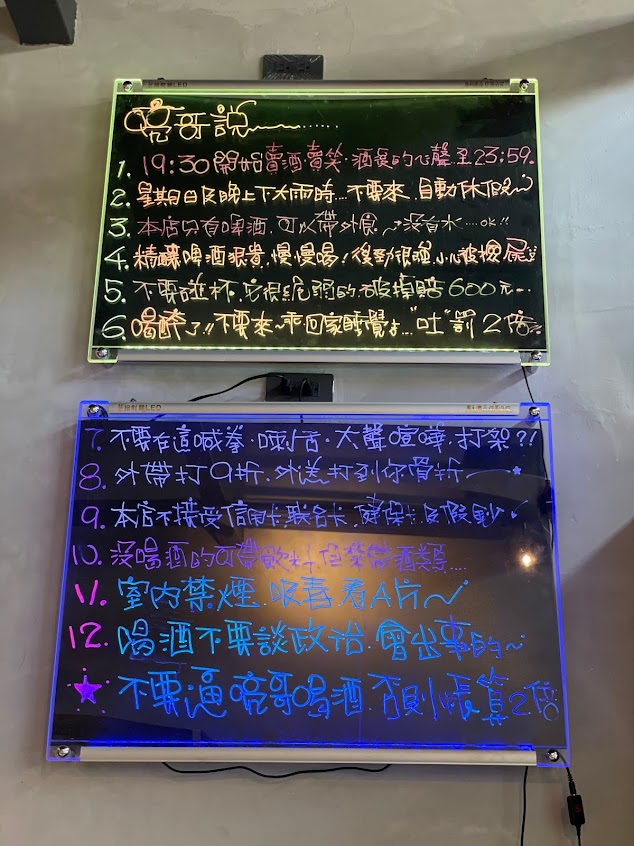 亮哥說~~~......
1. 19:30開始賣酒.賣笑.酒後的心聲至23:59.
2. 星期日及晚上下大雨時...不要來.自動休假~
3. 本店只有啤酒.可以帶外食.~沒有水....OK!!
4. 精釀啤酒很貴.慢慢喝!後勁很強小心被撿屍
5. 不要碰杯.它很脆弱的.破掉賠600元...
6. 喝醉了!!不要來~乖回家睡覺去..."吐"罰2倍
7. 不要在這喊拳.喇舌.大聲喧嘩.打架?!
8. 外帶打9折.外送打到你骨折
9. 本店不接受信用卡.聯名卡.健保卡及假鈔
10. 沒喝酒的可帶飲料.但禁帶酒類....
11. 室內禁煙.吸毒看A片~
12. 喝酒不要談政治.會出事的~
★ 不要逼亮哥喝酒.否則帳算2倍